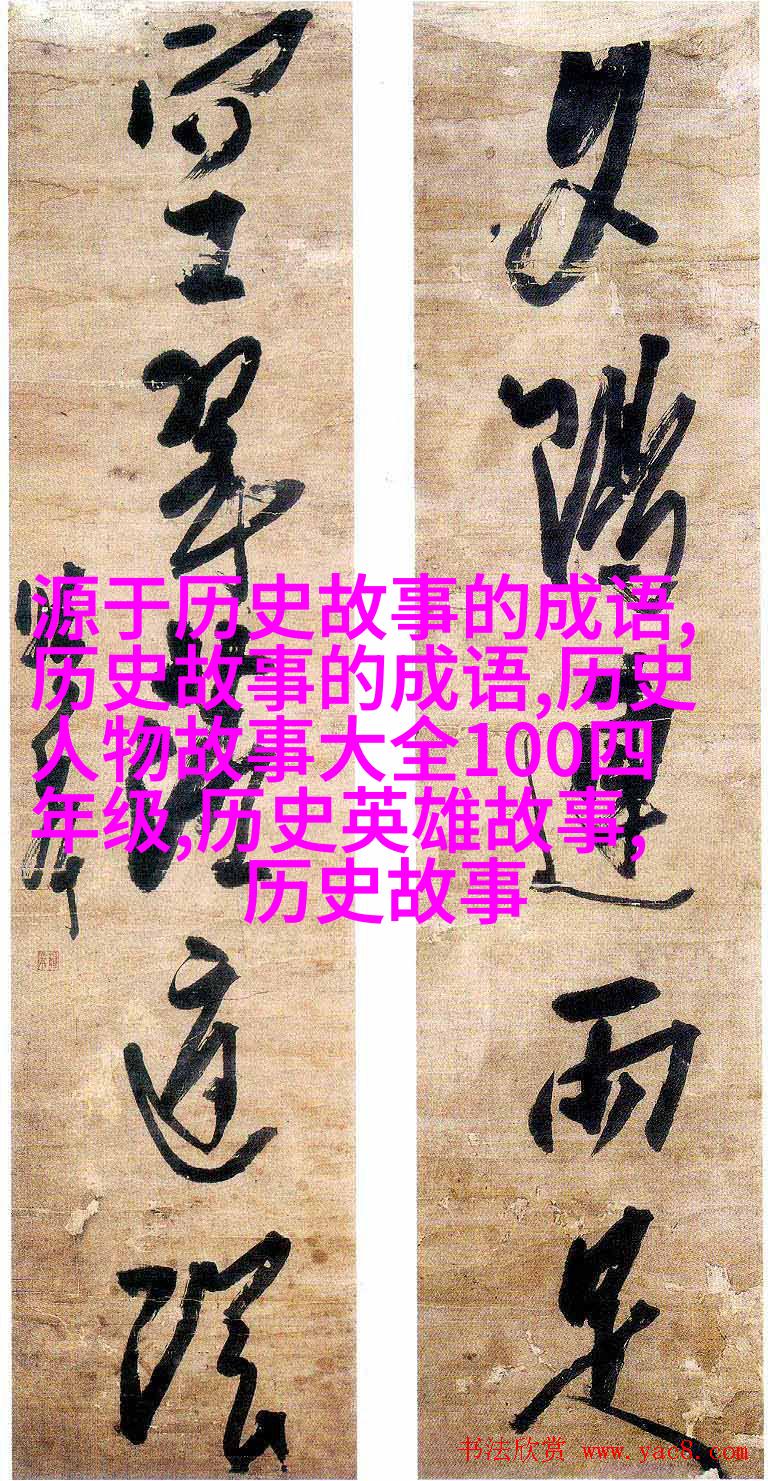 夕陽連雨足
空翠落庭陰
源于历史故事的成语,
历史故事的成语,历史
人物故事大全100四
年级,历史英雄故事,
历史故事
书法欣赏 www.yac8.com